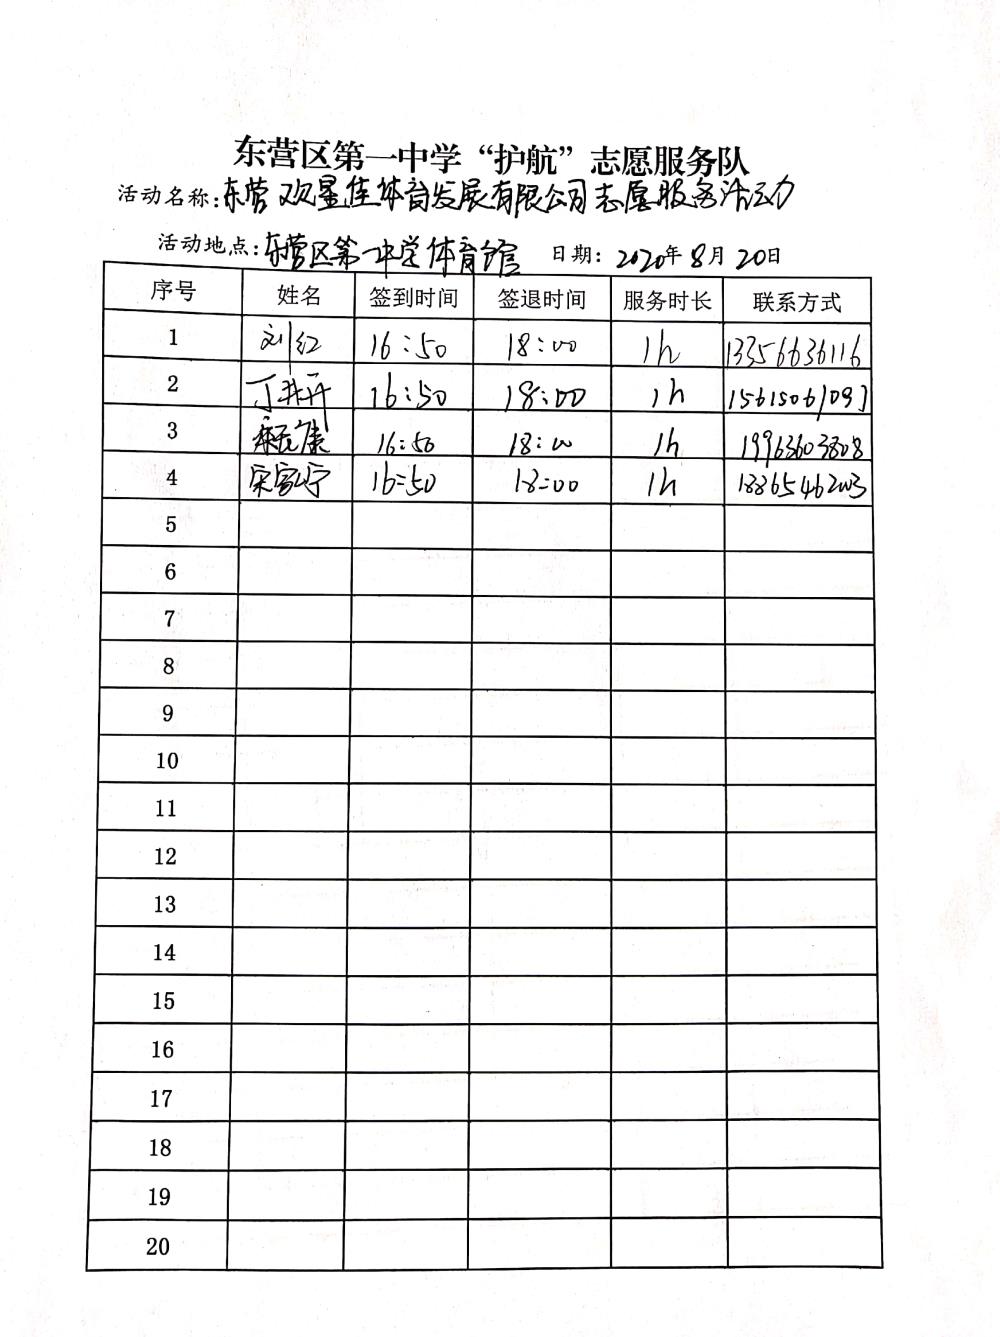 东营区第一中学“护航”志愿服务队
活动名称:东营双星佳体育发展有限公司志愿服务活动
活动地点:东营区第一中学体育馆 日期: 2020年8月20日
序号 姓名 签到时间 签退时间 服务时长 联系方式
1 刘红 16:50 18:00 1h 13356636116
2 丁 16:50 18:00 1h 15615061097
3 康 16:50 18:00 1h 19963603808
4 宋家宁 16:50 18:00 1h 18865462003
5
6
7
8
9
10
11
12
13
14
15
16
17
18
19
20